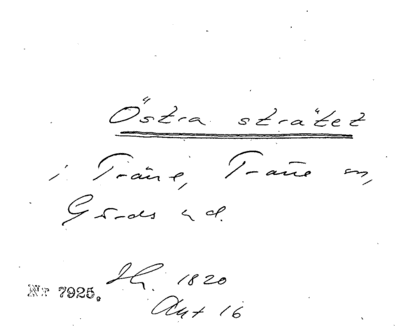 Östra strätet
i Träne, Träne sn,
Gärds hd.
Nr 7925.
1820
Akt 16